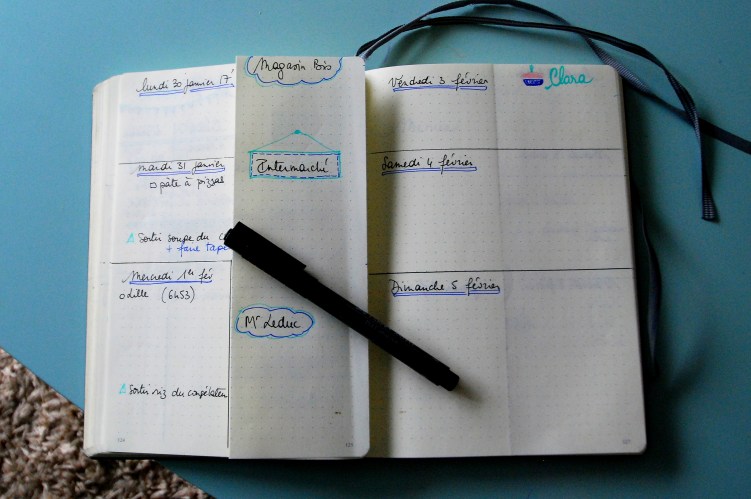 lundi 30 janvier 17'
mardi 31 janvier
pâte à pizzas
Sortir soupe du
+ faire
Mercredi 1er fév
Lille (6h53)
Sortir riz du congélateur
Magasin Bio
Intermarché
Mr Leduc
Vendredi 3 février
Clara
Samedi 4 février
Dimanche 5 février